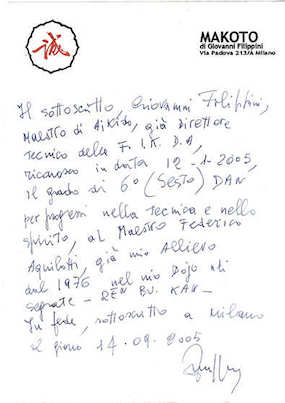 誠
MAKOTO
di Giovanni Filippini
Via Padova 213/A Milano
Il sottoscritto, Giovanni Filippini,
Maestro di Aikido, già Direttore
Tecnico della F. I. K. D. A,
riconosco in data 12-1-2005,
il grado di 6° (Sesto) DAN
per progressi nella tecnica e nello
spirito, al Maestro Federico
Aquilotti, già mio Allievo
dal 1976 nel mio Dojo di
Segrate - REN BU. KAN -
In fede, sottoscritto a Milano
il giorno 14.09.2005